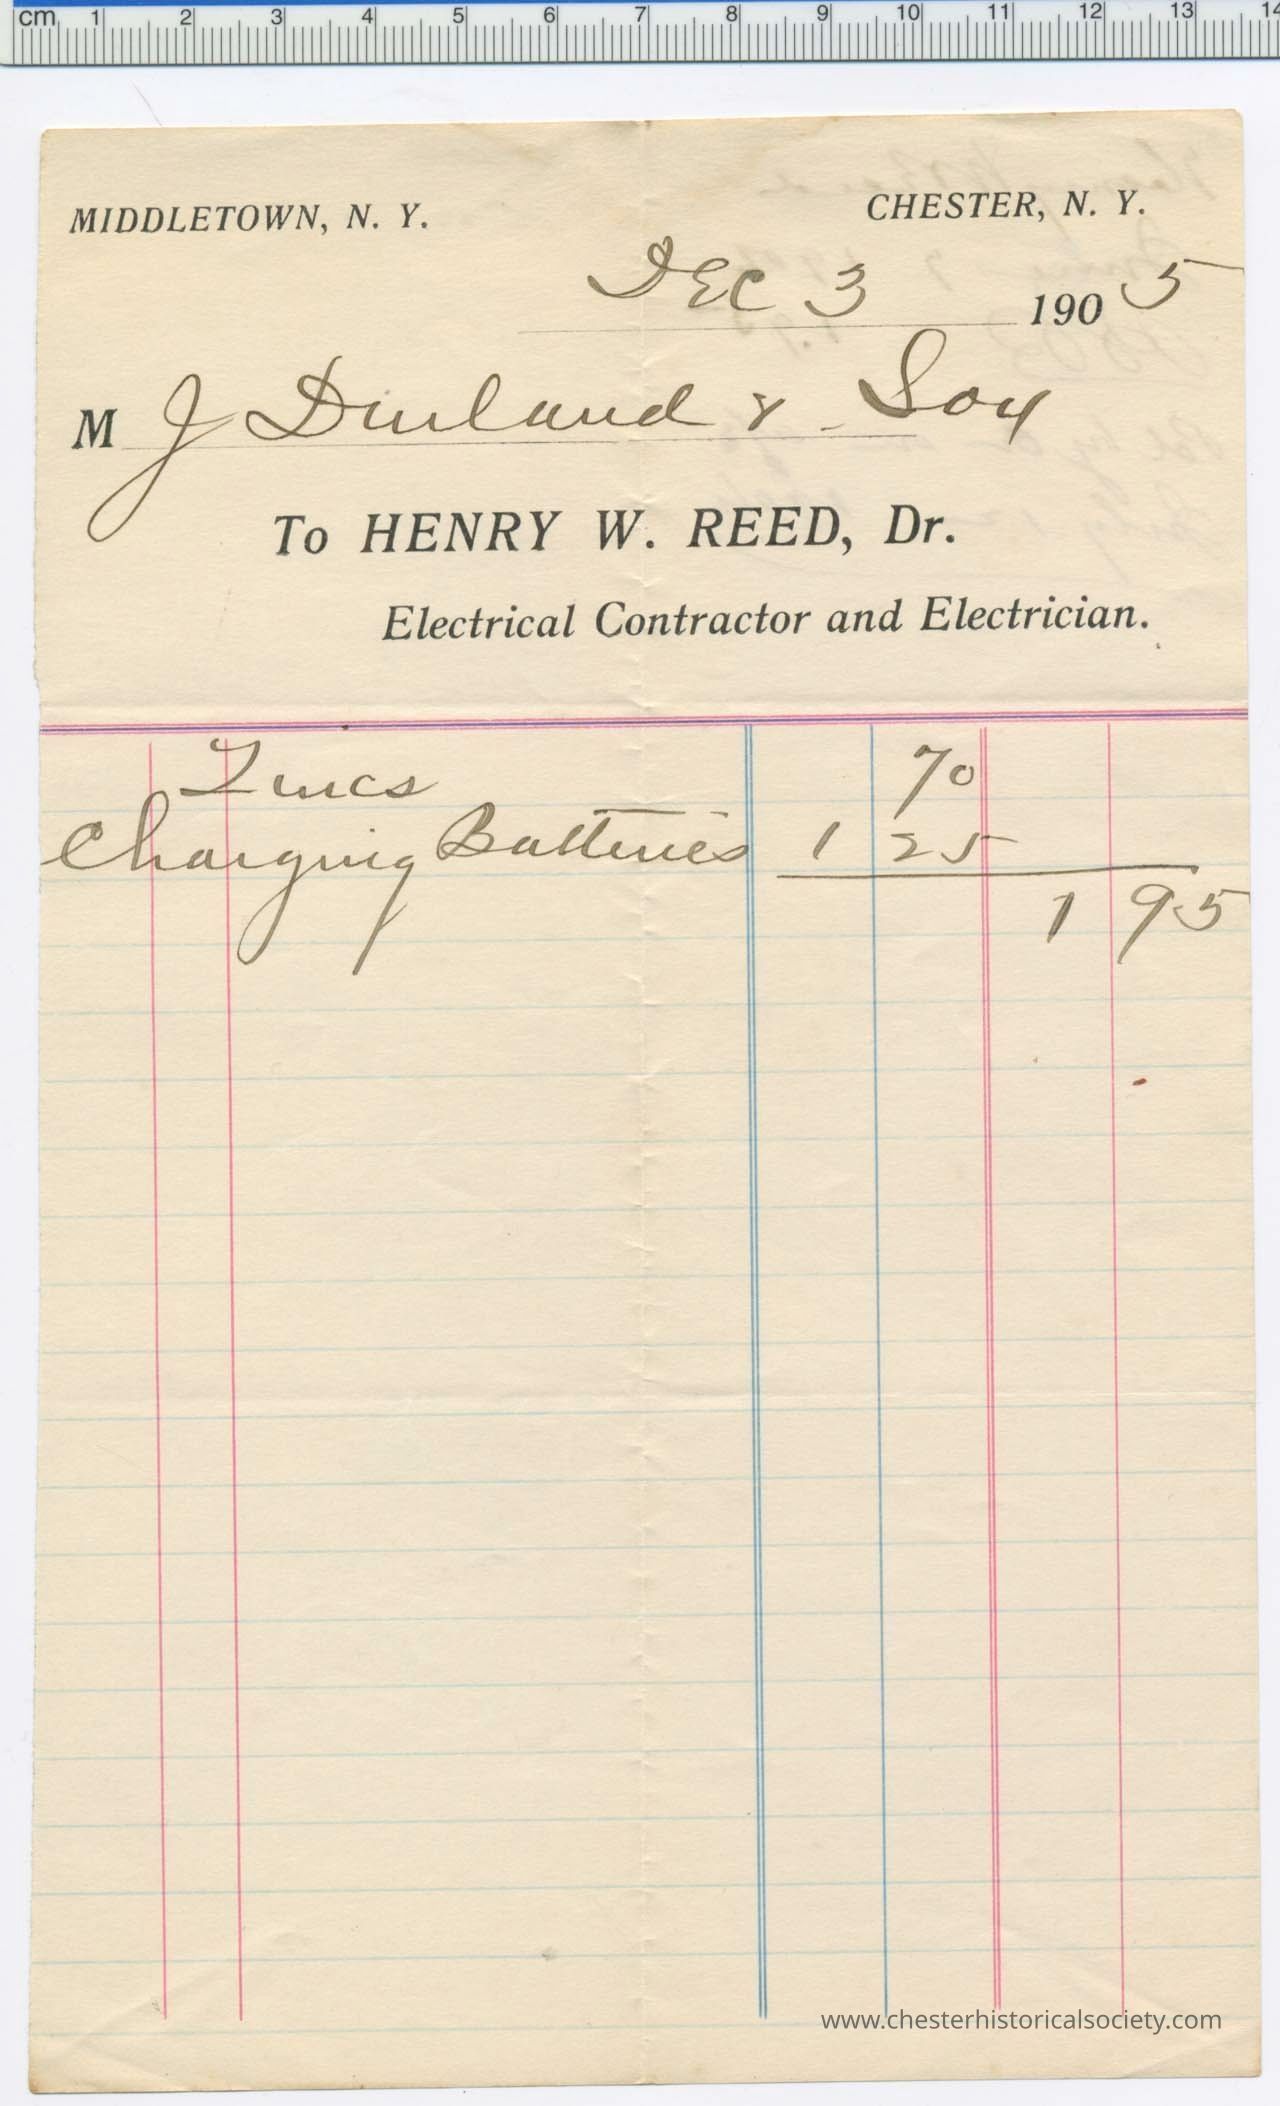 cm 1 2 3 4 5 6 7 8 9 10 11 12 13 14
MIDDLETOWN, N. Y. CHESTER, N. Y.
DEC 3 1905
M J Durland & Son
To HENRY W. REED, Dr.
Electrical Contractor and Electrician.
Zincs 70
Charging Batteries 1 25
1 95
www.chesterhistoricalsociety.com